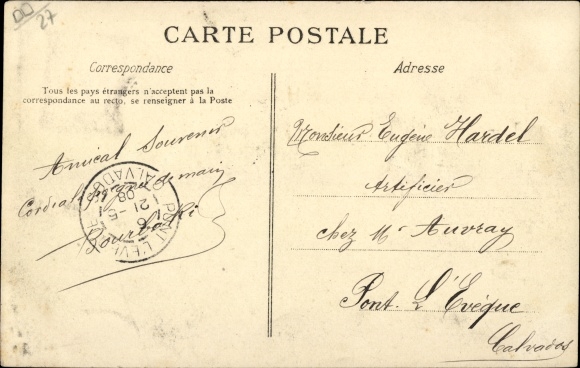 27
CARTE POSTALE
Correspondance
Tous les pays étrangers n'acceptent pas la
correspondance au recto, se renseigner à la Poste
Amical Souvenir
Cordiale poignée de main
PONT L'EVEQUE
CALVADOS
21 - 5
08
Adresse
Monsieur Eugène Hardel
Artificier
chez Mr Auvray
Pont. L'Evéque
Calvados